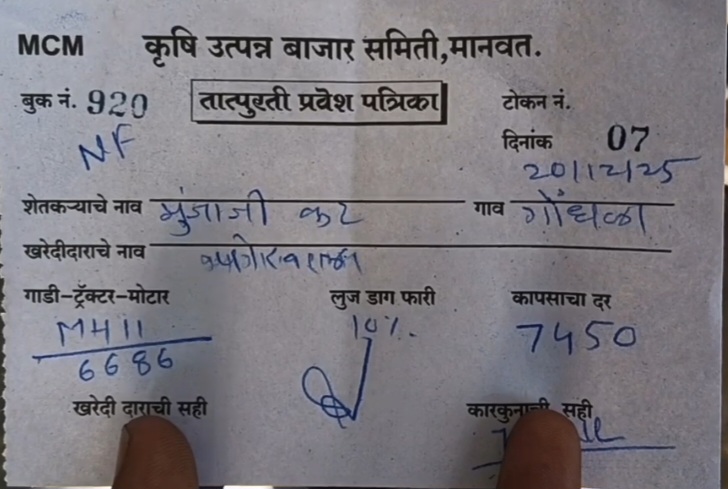 MCM कृषि उत्पन्न बाजार समिती,मानवत.
बुक नं. 920 तात्पुरती प्रवेश पत्रिका टोकन नं.
NF दिनांक 07
20/12/25
शेतकऱ्याचे नाव मुंजाजी कट गाव गोंधळा
खरेदीदाराचे नाव
गाडी-ट्रॅक्टर-मोटार लुज डाग फारी कापसाचा दर
MH11 10%. 7450
6686
खरेदी दाराची सही कारकुनाची सही